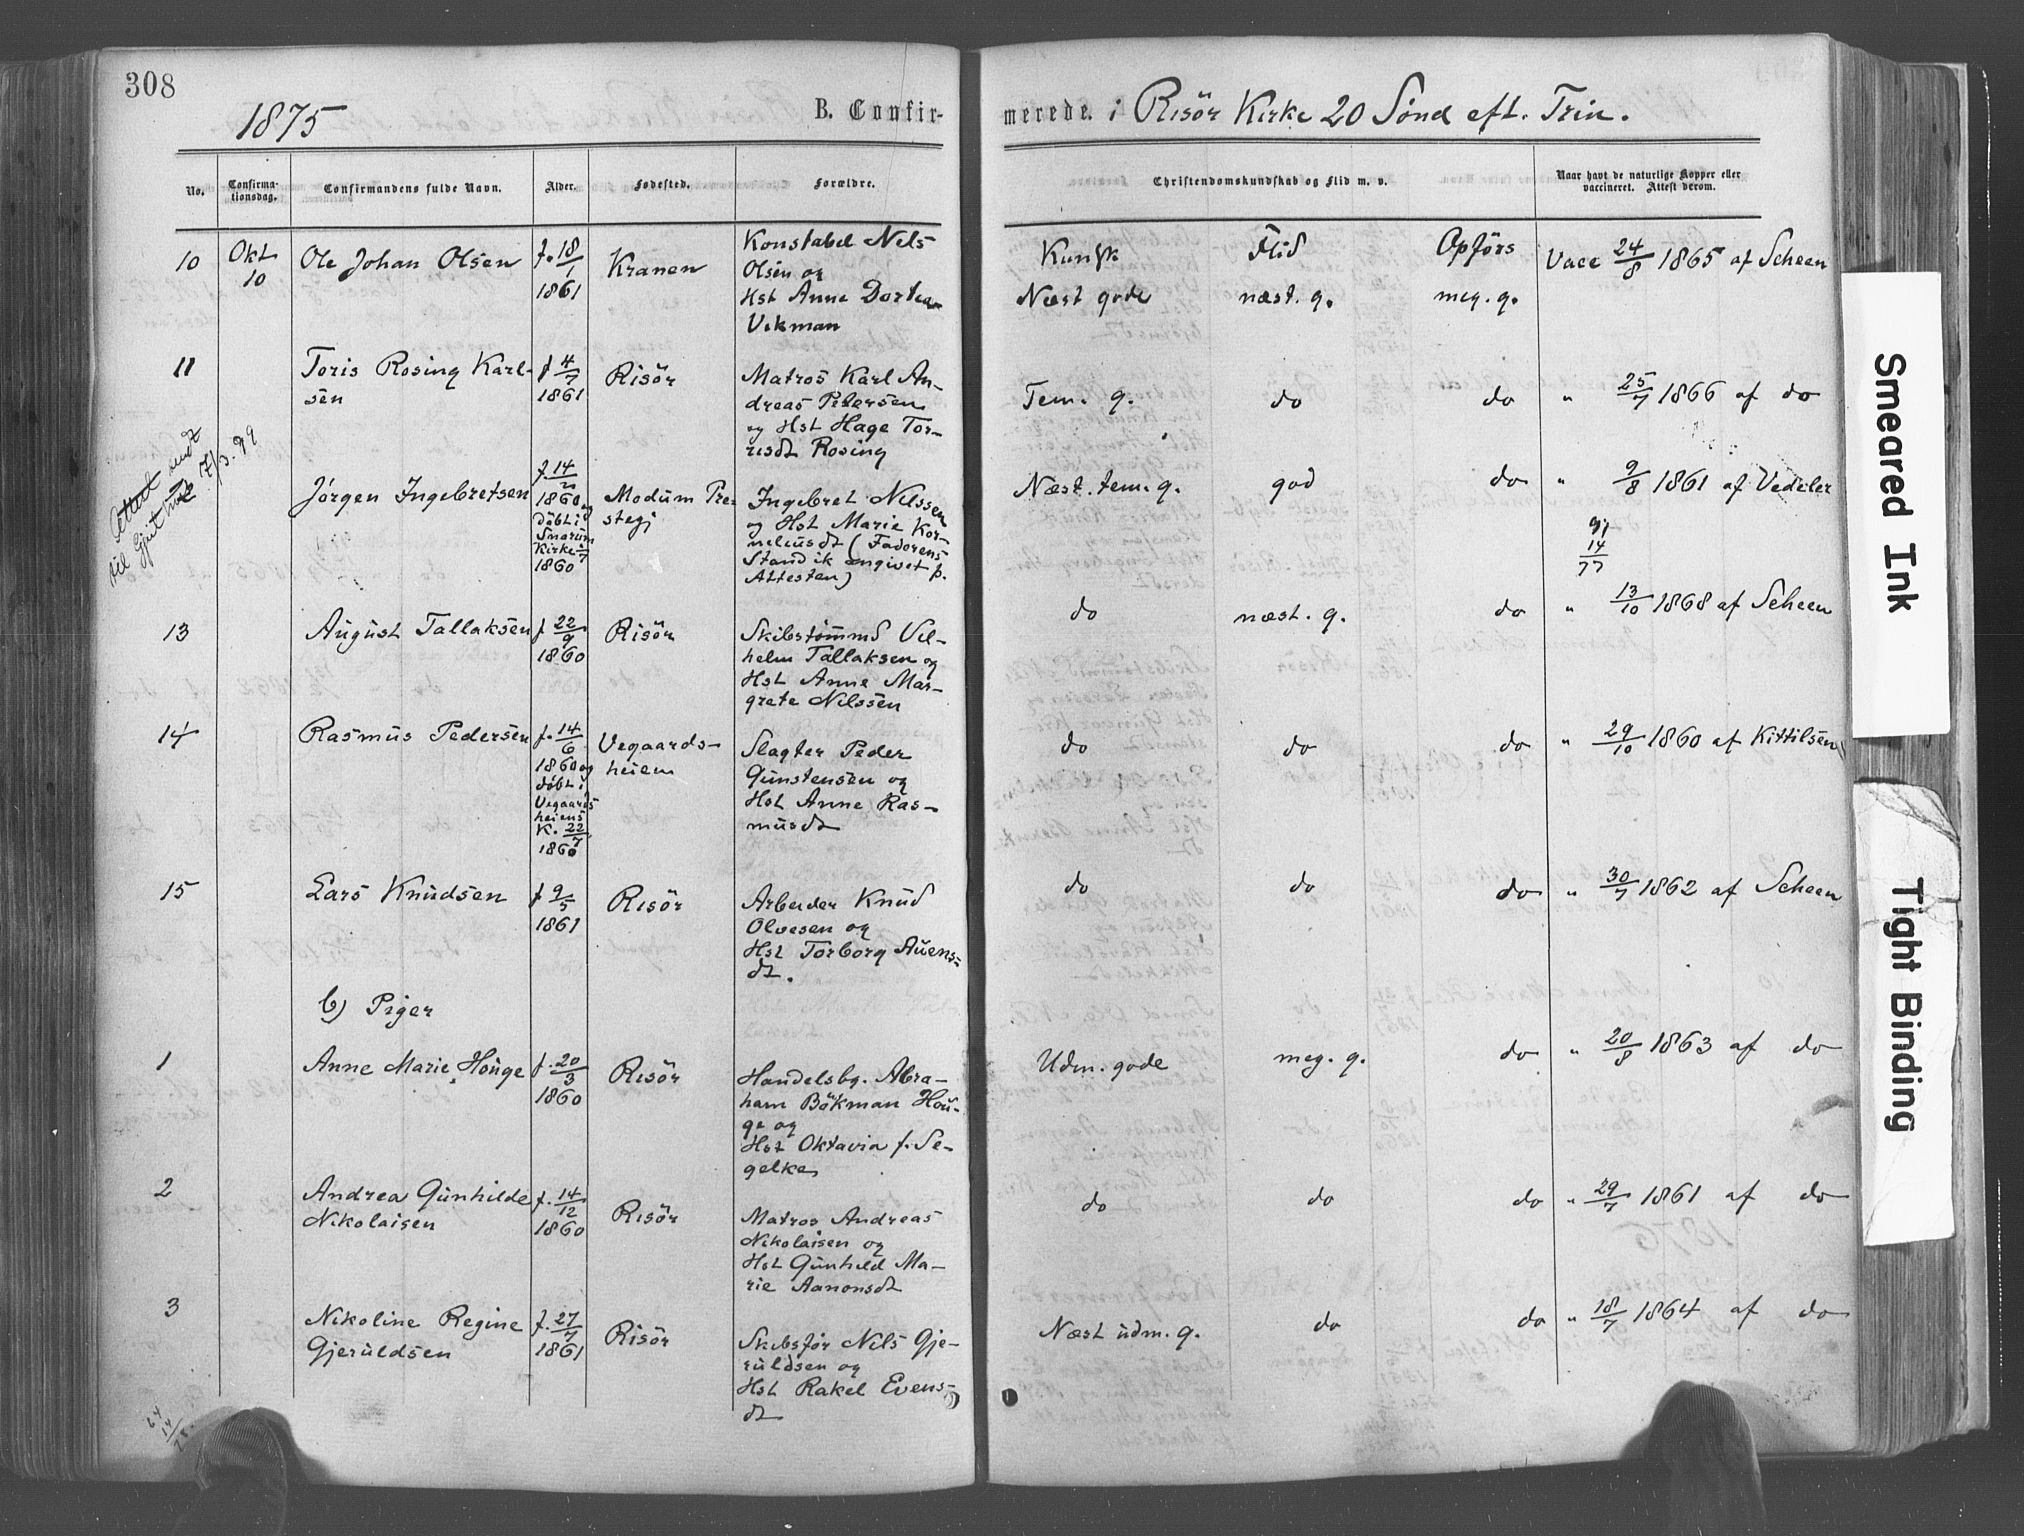 308
1875 B. Confir-merede. i Risör Kirke 20 Sönd eft. Trin.
No. Confirma-tionsdag. Confirmandens fulde Navn. Alder. Födested. Forældre. Christendomskundskab og Flid m. v. Naar havt de naturlige Kopper eller vaccineret. Attest derom.
10 Okt 10 Ole Johan Olsen f. 18/1 1861 Kranen Konstabel Nels
Olsen og
Hst Anne Dortea
Vikman
Kunsk Flid Opförs Vacc 24/8 1865 af Scheen
Næst gode næst. g. meg. g.
11 Toris Rosing Karl-
sen
f 4/7 1861 Risör Matros Karl An-
dreas Petersen
og Hst Hage Tor-
risdt Rosing
Tem. g. do do " 25/7 1866 af do
Attest sendt
til
Jörgen Ingebretsen f 14/2 1860 og
döbt i
Snarum
Kirke
1860
Modum Pre-
stegj
Ingebret Nilssen
og Hst Marie Kor-
neliusdt (Faderens
Stand ik angivet p.
Attesten)
Næst. tem. g. god do " 9/8 1861 af Vedeler
14
77
13 August Tallaksen f 22/9 1860 Risör Skibstömmd Vil-
helm Tallaksen og
Hst Anne Mar-
grete Nilssen
do næst. g. do " 13/10 1868 af Scheen
14 Rasmus Pedersen f. 14/6
1860 og
döbt i
Vegaards
heiens
K. 22/7
1860
Vegaards-
heien
Slagter Peder
Gunstensen og
Hst Anne Ras-
musdt
do do do " 29/10 1860 af Kittilsen
15 Lars Knudsen f 9/5 1861 Risör Arbeider Knud
Olvesen og
Hst Torborg Auens-
dt.
do do do " 30/7 1862 af Scheen
b) Piger
1 Anne Marie Houge f. 20/3 1860 Risör Handelsbg. Abra-
ham Bökman Hou-
ge og
Hst Oktavia f. Se-
gelke
Udm. gode meg. g. do " 20/8 1863 af do
2 Andrea Gunhilde
Nikolaisen
f. 14/12 1860 Risör Matros Andreas
Nikolaisen og
Hst Gunhild Ma-
rie Aanonsdt
do do do " 29/7 1861 af do
3 Nikoline Regine
Gjeruldsen
f. 27/7 1861 Risör Skibsför Nils Gje-
ruldsen og
Hst Rakel Evens-
dt
Næst udm. g. do do " 18/7 1864 af do
64
14
78.
Smeared Ink
Tight Binding